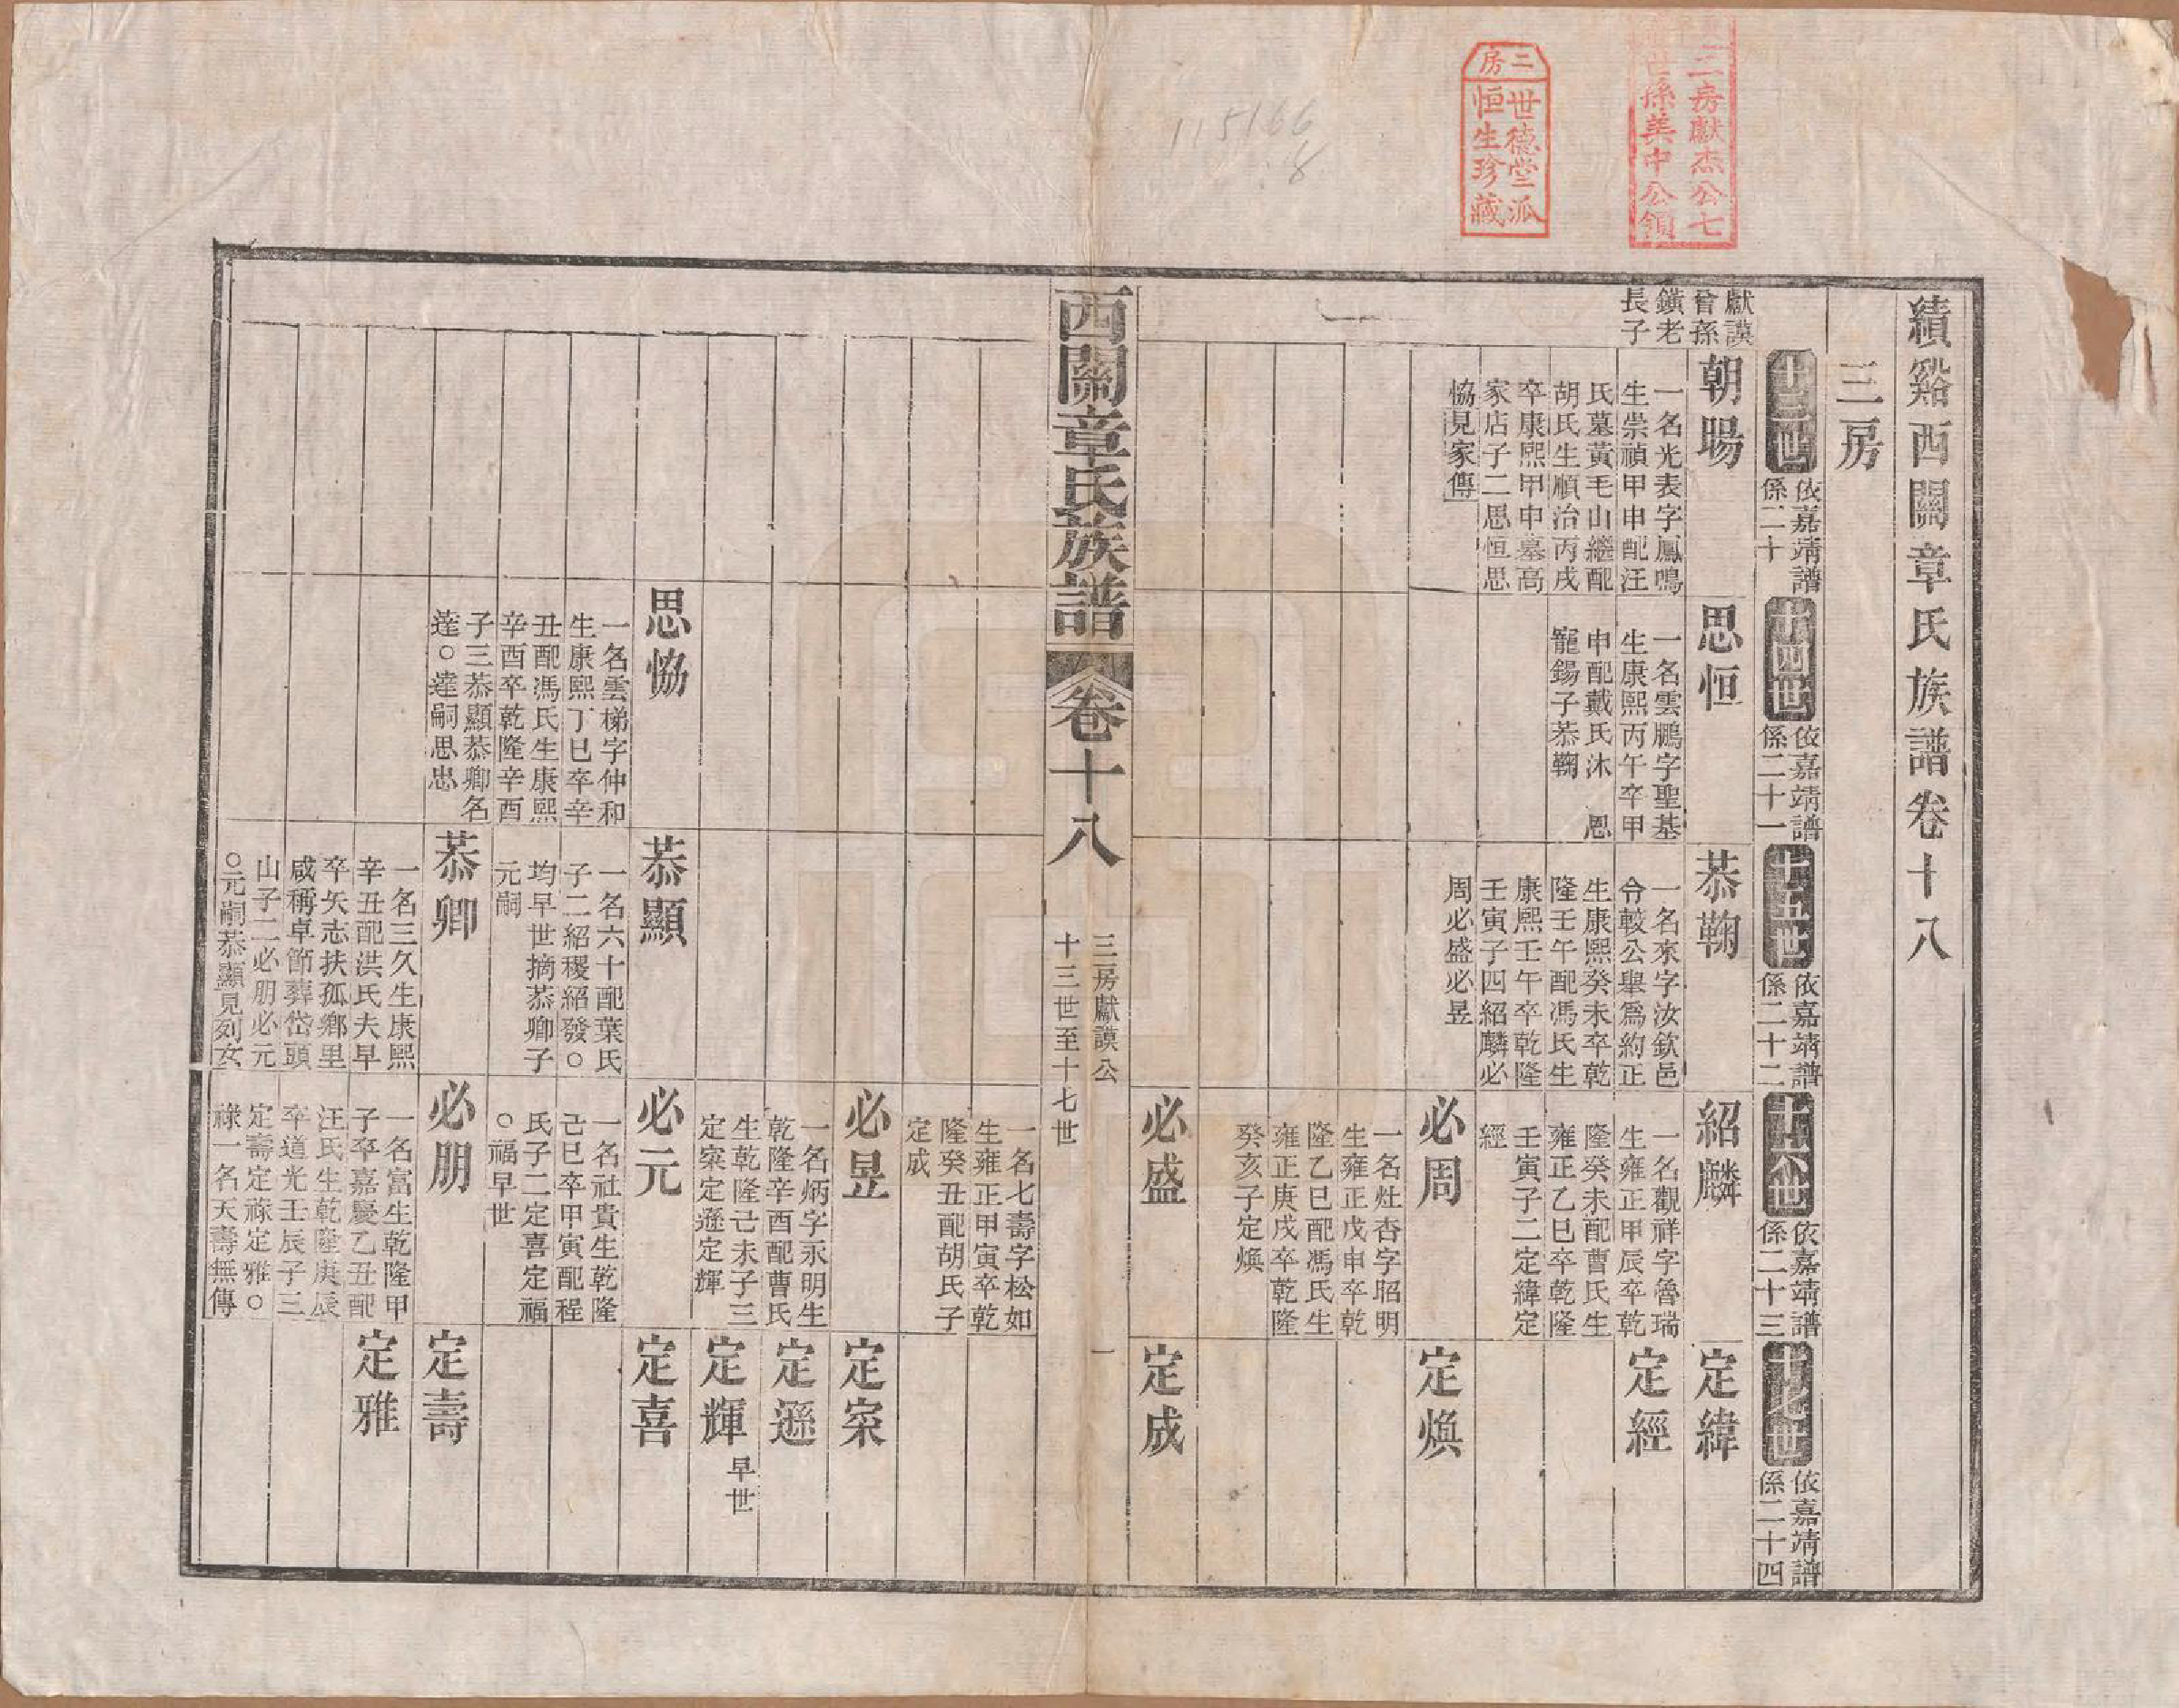 績谿西關章氏族譜卷十八
三房
十三世
依嘉靖譜
係二十
十四世
依嘉靖譜
係二十一
十五世
依嘉靖譜
係二十二
十六世
依嘉靖譜
係二十三
十七世
依嘉靖譜
係二十四
獻謨
曾孫
鑌老
長子
朝暘
一名光表字鳳鳴
生崇禎甲申配汪
氏墓黃毛山繼配
胡氏生順治丙戌
卒康熙甲申墓高
家店子二思恒思
恊見家傳
思恒
一名雲鵬字聖基
生康熙丙午卒甲
申配戴氏沐 恩
寵錫子㳟鞠
㳟鞠
一名來字汝欽邑
令較公舉爲約正
生康熙癸未卒乾
隆壬午配馮氏生
康熙壬午卒乾隆
壬寅子四紹麟必
周必盛必昱
紹麟
一名觀祥字魯瑞
生雍正甲辰卒乾
隆癸未配曹氏生
雍正乙巳卒乾隆
壬寅子二定緯定
經
定緯
定經
必周
一名灶杏字昭明
生雍正戊申卒乾
隆乙巳配馮氏生
雍正庚戌卒乾隆
癸亥子定煥
定煥
必盛
定成
西關章氏族譜
卷十八
三房獻謨公
十三世至十七世
一
一名七壽字松如
生雍正甲寅卒乾
隆癸丑配胡氏子
定成
必昱
一名炳字永明生
乾隆辛酉配曹氏
生乾隆己未子三
定寀定遜定輝
定寀
定遜
定輝
早世
思恊
一名雲梯字仲和
生康熙丁巳卒辛
丑配馮氏生康熙
辛酉卒乾隆辛酉
子三㳟顯㳟卿名
達○達嗣思忠
㳟顯
一名六十配葉氏
子二紹稷紹發○
均早世摘㳟卿子
元嗣
必元
一名社貴生乾隆
己巳卒甲寅配程
氏子二定喜定福
○福早世
定喜
㳟卿
一名三久生康熙
辛丑配洪氏夫早
卒矢志扶孤鄉里
咸稱卓節葬岱頭
山子二必朋必元
○元嗣㳟顯見列女
必朋
一名富生乾隆甲
子卒嘉慶乙丑配
汪氏生乾隆庚辰
卒道光壬辰子三
定壽定祿定雅○
祿一名天壽無傳
定壽
定雅
三房
世德堂派
恒生珍藏
三房獻杰公七
世孫美中公領
115166
8